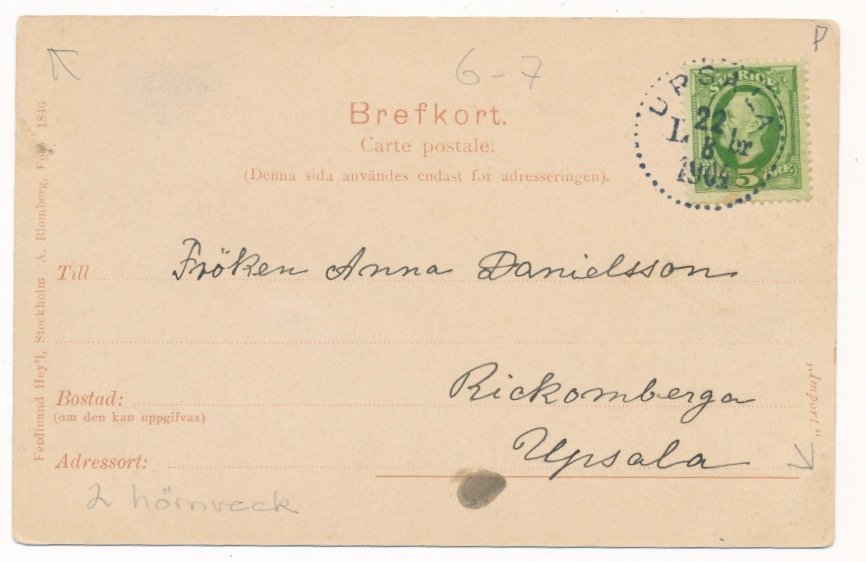 6-7
P
Brefkort.
Carte postale.
(Denna sida användes endast för adresseringen).
SVERIGE
5 ÖRE
22
8
1904
Till Fröken Anna Danielsson
Bostad: Rickomberga
(om den kan uppgifvas)
Adressort: Upsala
2 hörnveck
Ferdinand Hey'l, Stockholm A. Blomberg, Foto 1846
„Import“